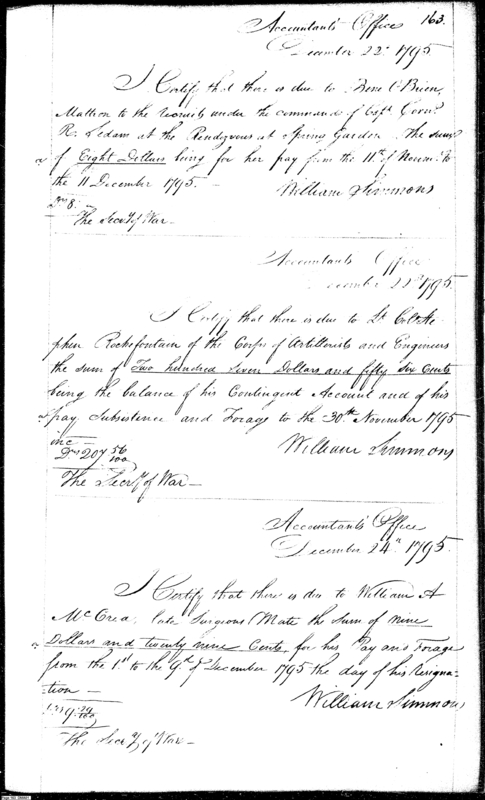 163.
Accountants Office
December 22d 1795
I Certify that there is due to Bone O'Brien,
Matron to the recruits under the command of Capt. Corns.
R. Sedam at the Rendezvous at Spring Garden the sum
of Eight Dollars being for her pay from the 11th of Novemr. to
the 11 December 1795. —
William Simmons
Drs 8. —
The Secrty of War —
Accountants Office
December 22d 1795.
I Certify that there is due to Lt. Col. Ste-
phen Rochefontain of the Corps of Artillorists and Engineers
the sum of Two hundred Seven Dollars and fifty Six Cents
being the balance of his Contingent Account and of his
pay, Subsistence and Forage to the 30th November 1795
inc —
William Simmons
Drs 207 56/100
The Secrty of War —
Accountants Office
December 24th 1795.
I Certify that there is due to William A
McCrea late Surgeons Mate the Sum of nine
Dollars and twenty nine Cents, for his Pay and Forage
from the 1st to the 9th of December 1795 the day of his Resigna-
tion —
William Simmons
Drs 9 29/100
The Secrty of War —